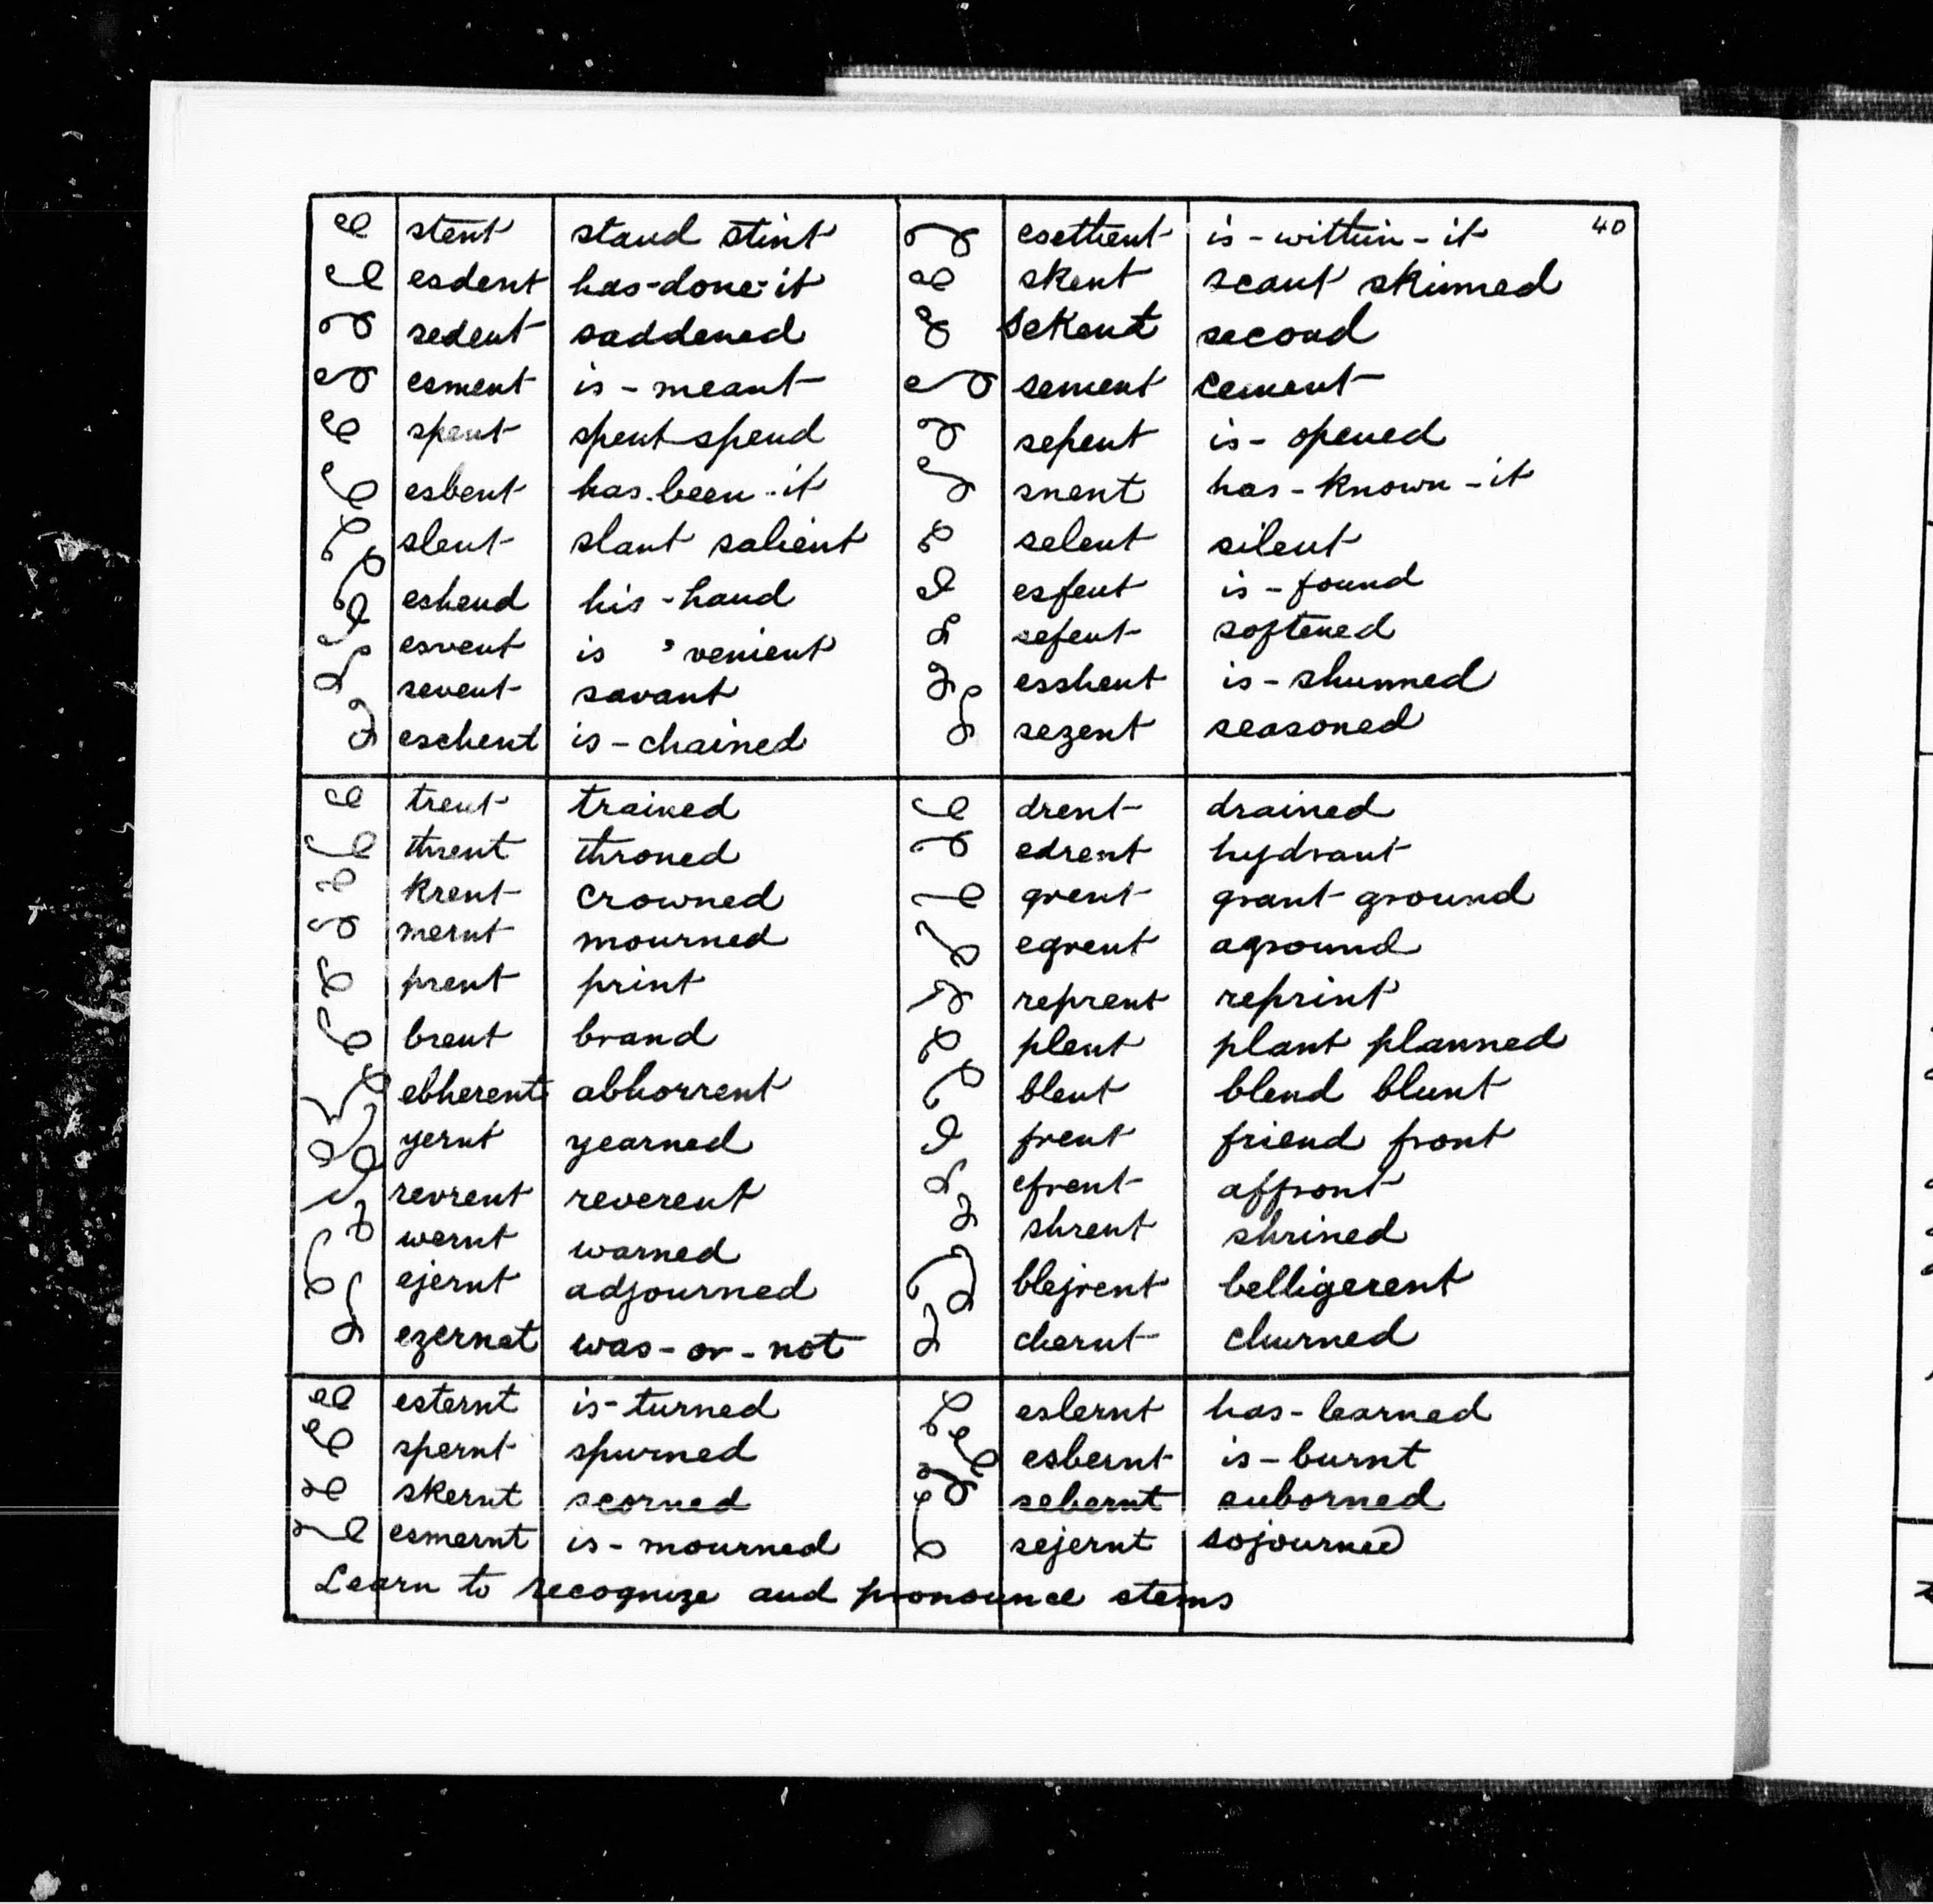 stent stand stint esethent is-within-it 40
esdent has-done-it skent scant skinned
sedent saddened sekent second
esment is-meant sement cement
spent spent spend sepent is-opened
esbent has-been-it snent has-known-it
slent slant salient selent silent
eshend his-hand esfent is-found
esvent is 'venient sefent softened
sevent savant esshent is-shunned
eschent is-chained sezent seasoned
trent trained drent drained
thrent throned edrent hydrant
krent crowned grent grant ground
mernt mourned egrent aground
prent print reprent reprint
brent brand plent plant planned
ebherent abhorrent blent blend blunt
yernt yearned frent friend front
revrent reverent efrent affront
wernt warned shrent shrined
ejernt adjourned blejrent belligerent
ezernet was-or-not chernt churned
esternt is-turned eslernt has-learned
spernt spurned esbernt is-burnt
skernt scorned sebernt suborned
esmernt is-mourned sejernt sojourned
Learn to recognize and pronounce stems